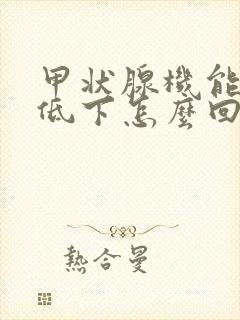 甲状腺機能
低下怎麼回
熱合曼